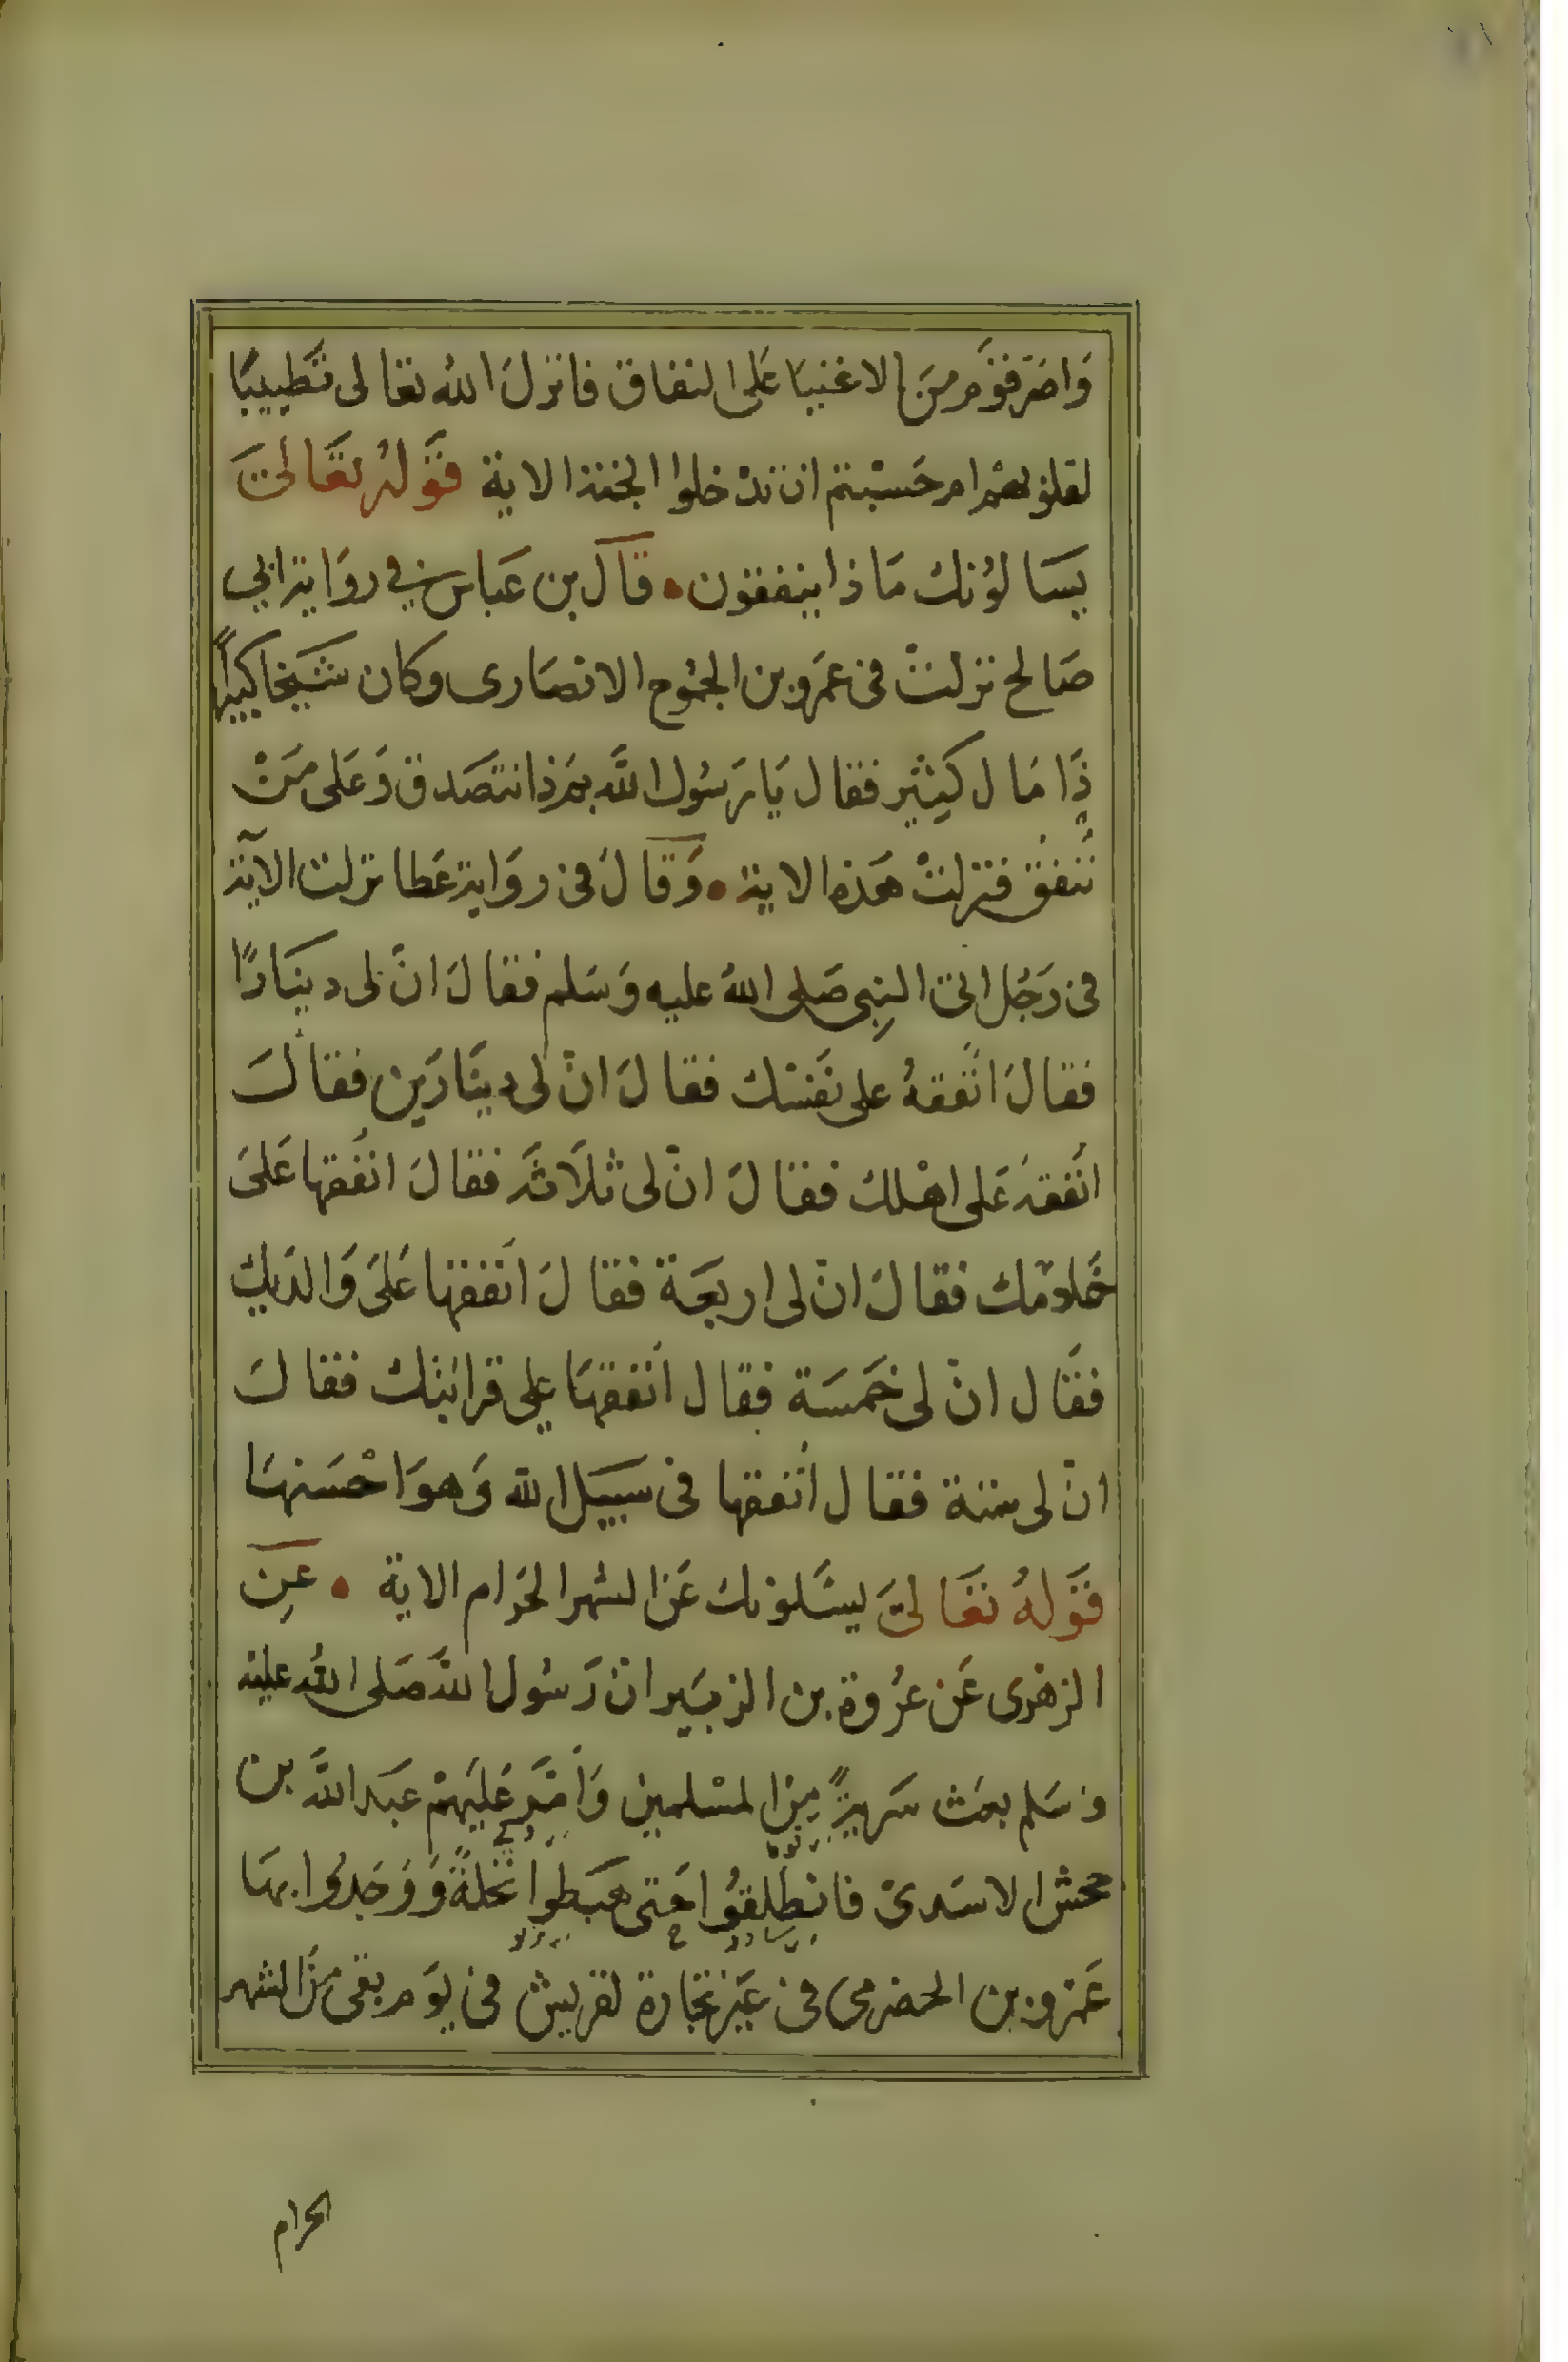 وَاصَرقوَم منَ الاغنيا عَلى النفاق فانزلَ اللهُ تعالى تَطييبًا
لقلوبهم ام حَسْبتم ان تدْخلوا الجنة الاية قَولهُ تعَالىَ
يسَالوُنك مَاذا ينفقون قالَ بن عَباس في روَاية ابي
صَالح نزلتْ في عَمرو بن الجمُوح الانصَارى وكان شيَخا كبيراً
ذَا مَال كثيْر فقال يَا رَسُول اللَّه بمَذا نتصَدق وَعَلى مَنْ
نُنفق فنزلتْ هَذه الاية وَقالَ في روَاية عَطا نزلت الآية
في رَجُل اتى النبِى صَلى اللهُ عليه وَسَلم فقالَ انّ لى دينَارًا
فقالَ انَفقهُ على نفَسْك فقالَ انّ لى دينَارَين فقالَ
انَفقهَ عَلى اهْلك فقالَ انّ لى ثلاَثة فقالَ انَفقها عَلىَ
خَادمَك فقالَ انّ لى اربعَة فقالَ اَنفقها عَلىَ وَالدَيك
فقَال انّ لى خَمسَة فقال اَنفقهَا على قرابَتك فقالَ
انّ لى ستة فقال اَنفقها فى سَبيَل الله وَهوَ احْسَنهَا
قَولهُ تعَالىَ يسَئلونك عَن الشهر الحَرام الاية عَنِ
الزهرى عَن عرُوة بن الزبيَر انّ رَسُول اللهَّ صَلى اللهُ عليه
وَسَلم بعَث سَريةً مِنَ المسْلمين وَأمَّرَ عَليَهمْ عبَد اللَّه بن
جحش الاسَدىّ فانطَلقوُا حَتى هبَطوا نخلةً وَوَجَدُوا بهَا
عَمرو بن الحضرمى فى عيَر تجارة لقريش فى يوَم بقى منَ الشهر
الحرام